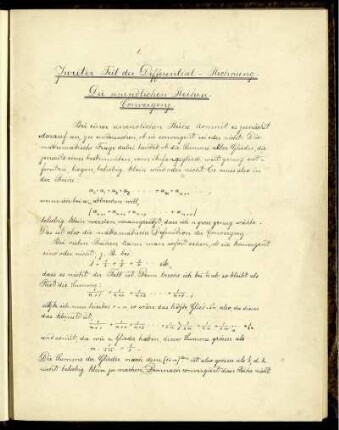 1
Zweiter Teil der Differential-Rechnung.
Die unendlichen Reihen.
Convergenz.
Bei einer unendlichen Reihe kommt es zunächst
darauf an, zu untersuchen, ob sie convergiert oder nicht. Die
mathematische Frage dabei handelt: ob die Summe aller Glieder, die
jenseits eines bestimmten vom Anfangsglied weit genug ent-
fernten liegen, beliebig klein wird oder nicht. Es muss also in
der Reihe
a₀ + a₁ + a₂ + a₃ + ... + aₙ + aₙ₊₁ ...
wenn sie bei aₙ abbrechen will,
[aₙ₊₁ + aₙ₊₂ + aₙ₊₃ ...]
beliebig klein werden, vorausgesetzt, dass ich n gross genug wähle.
Das ist also die mathematische Definition der Convergenz.
Bei vielen Reihen kann man sofort sehen, ob sie konvergent
sind oder nicht; z. B. bei
1 + 1/2 + 1/3 + 1/4 ... etc.
dass es nicht der Fall ist. Denn breche ich bei n ab, so bleibt als
Rest die Summe:
1/(n+1) + 1/(n+2) + 1/(n+3) + ... + 1/(n+r) ...
ich nun hierbei r = n, so wäre das letzte Glied 1/2n, also da dieses
das kleinste ist,
1/(n+1) + 1/(n+2) + 1/(n+3) + ... + 1/2n
und somit, da wir n Glieder haben, diese Summe grösser als
n · 1/2n = 1/2.
Die Summe der Glieder nach dem (n)ten ist also grösser als 1/2, d. h.
nicht beliebig klein zu machen. Demnach convergiert diese Reihe nicht